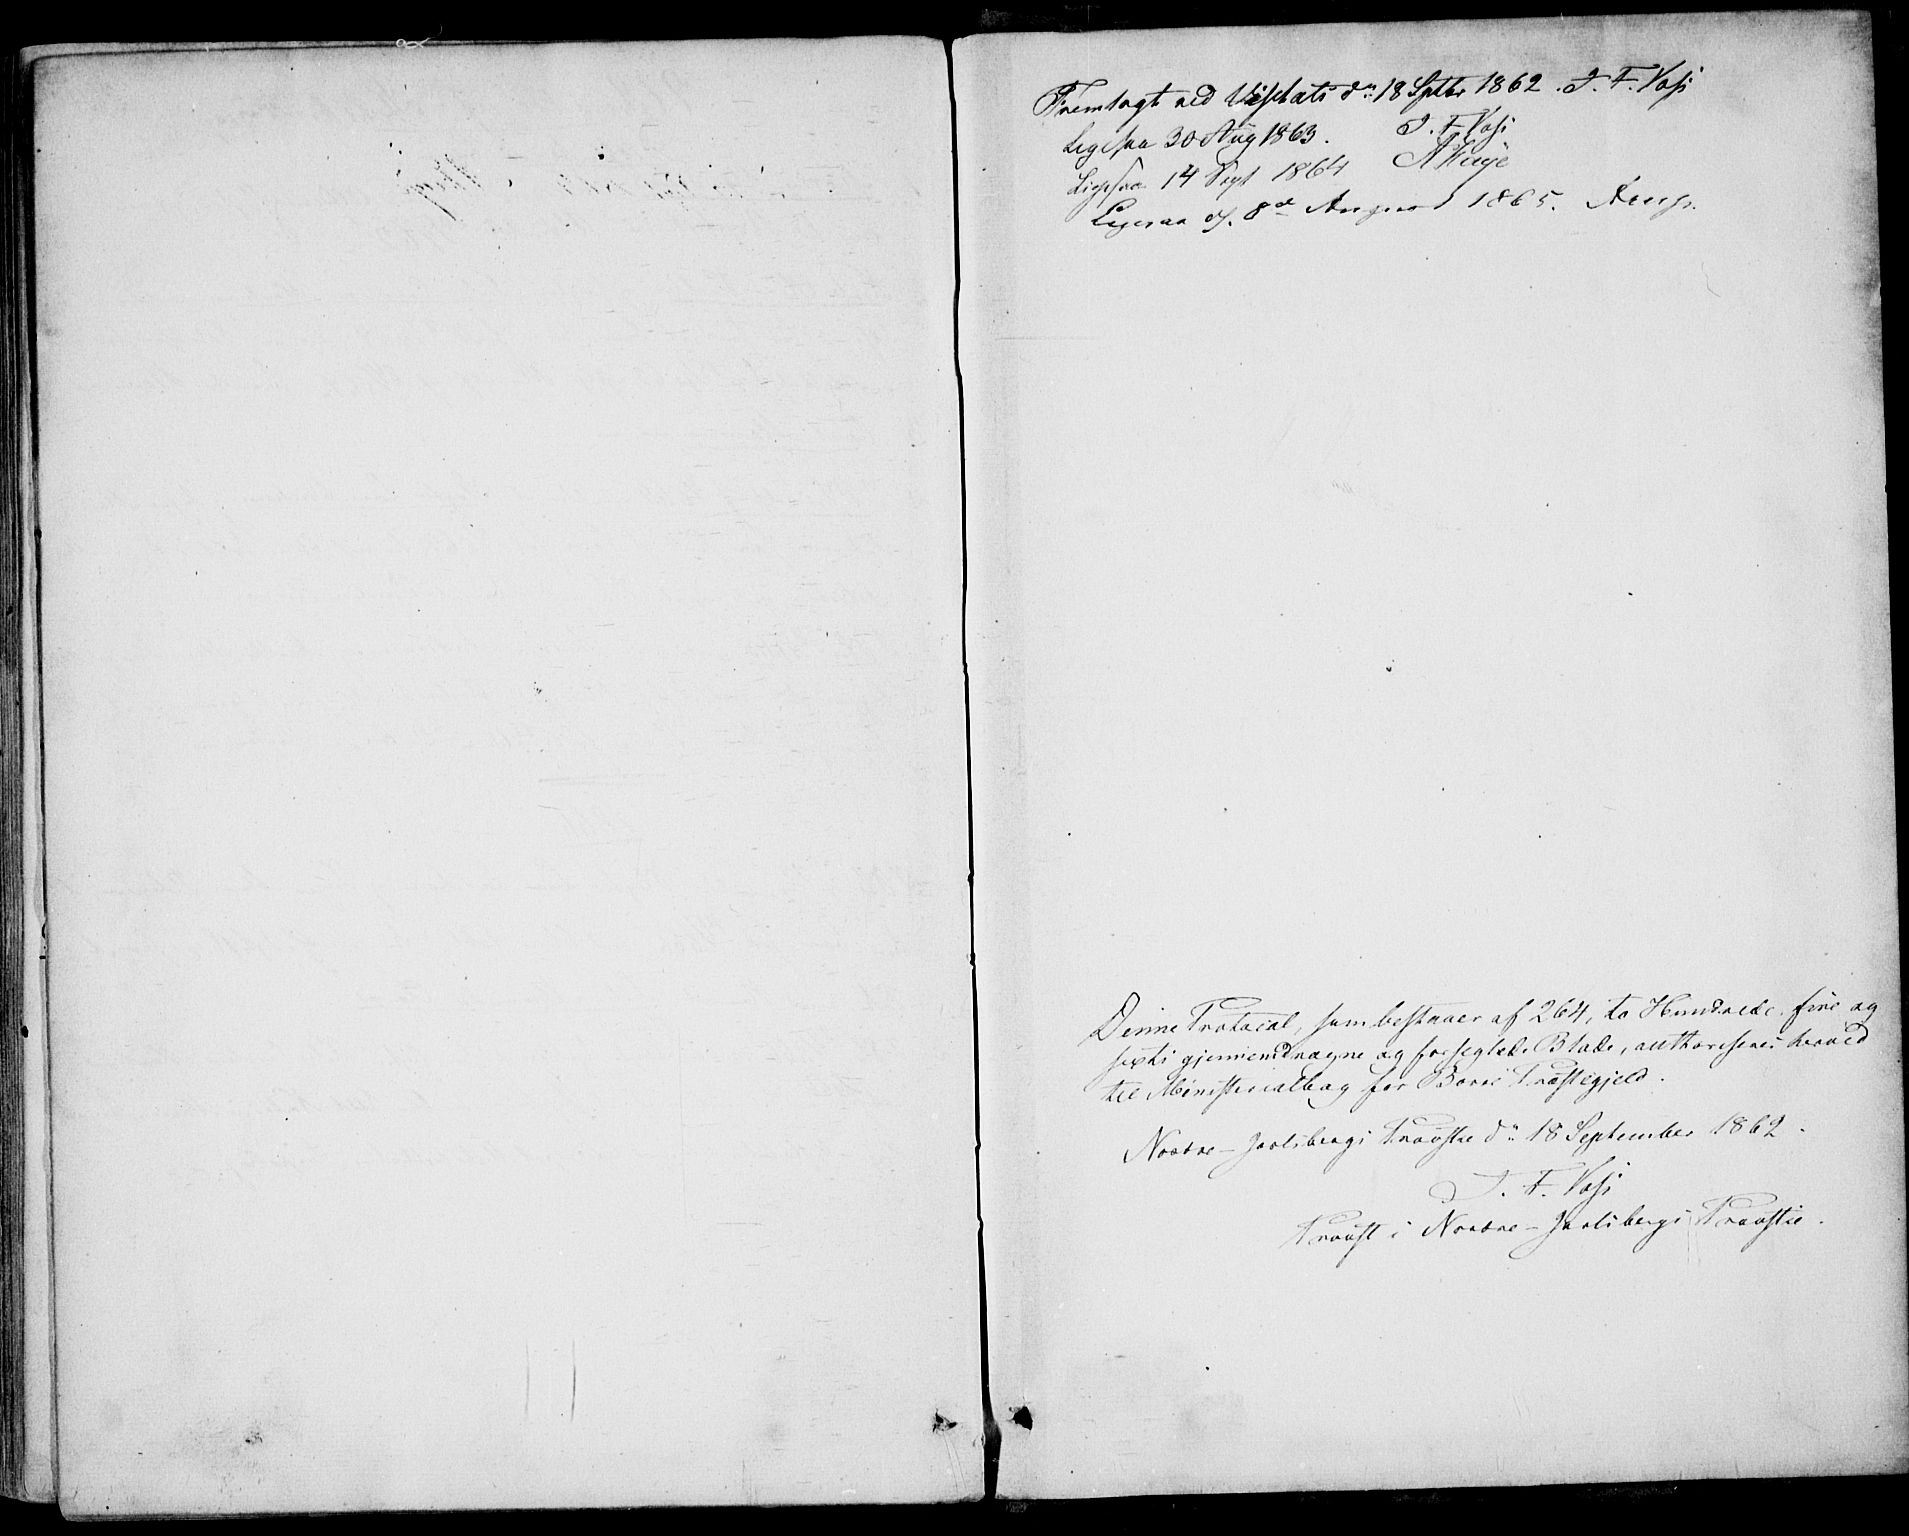 Fremlagt ved Visitats dn 18 Septbr 1862. J. F. Voss
Ligesaa 30 Aug 1863. J. F. Voss
Ligesaa 14 Sept 1864
Ligesaa d. 8de August 1865. Arup.
Denne Protocol, som bestaaer af 264, to Hundrede fire og
sexti gjennemdragne og forseglede Blade, authoriseres herved
til Ministerialbog for Borre Præstegjeld.
Nordre-Jarlsbergs Provstie dn 18 September 1862.
J. F. Voss
Provst i Nordre-Jarlsbergs Provstie.